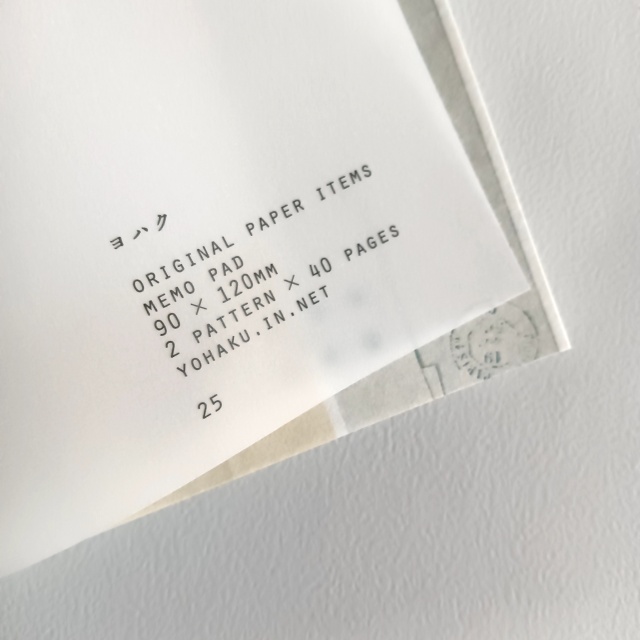 ヨハク
ORIGINAL PAPER ITEMS
MEMO PAD
90 × 120MM
2 PATTERN × 40 PAGES
YOHAKU.IN.NET
25